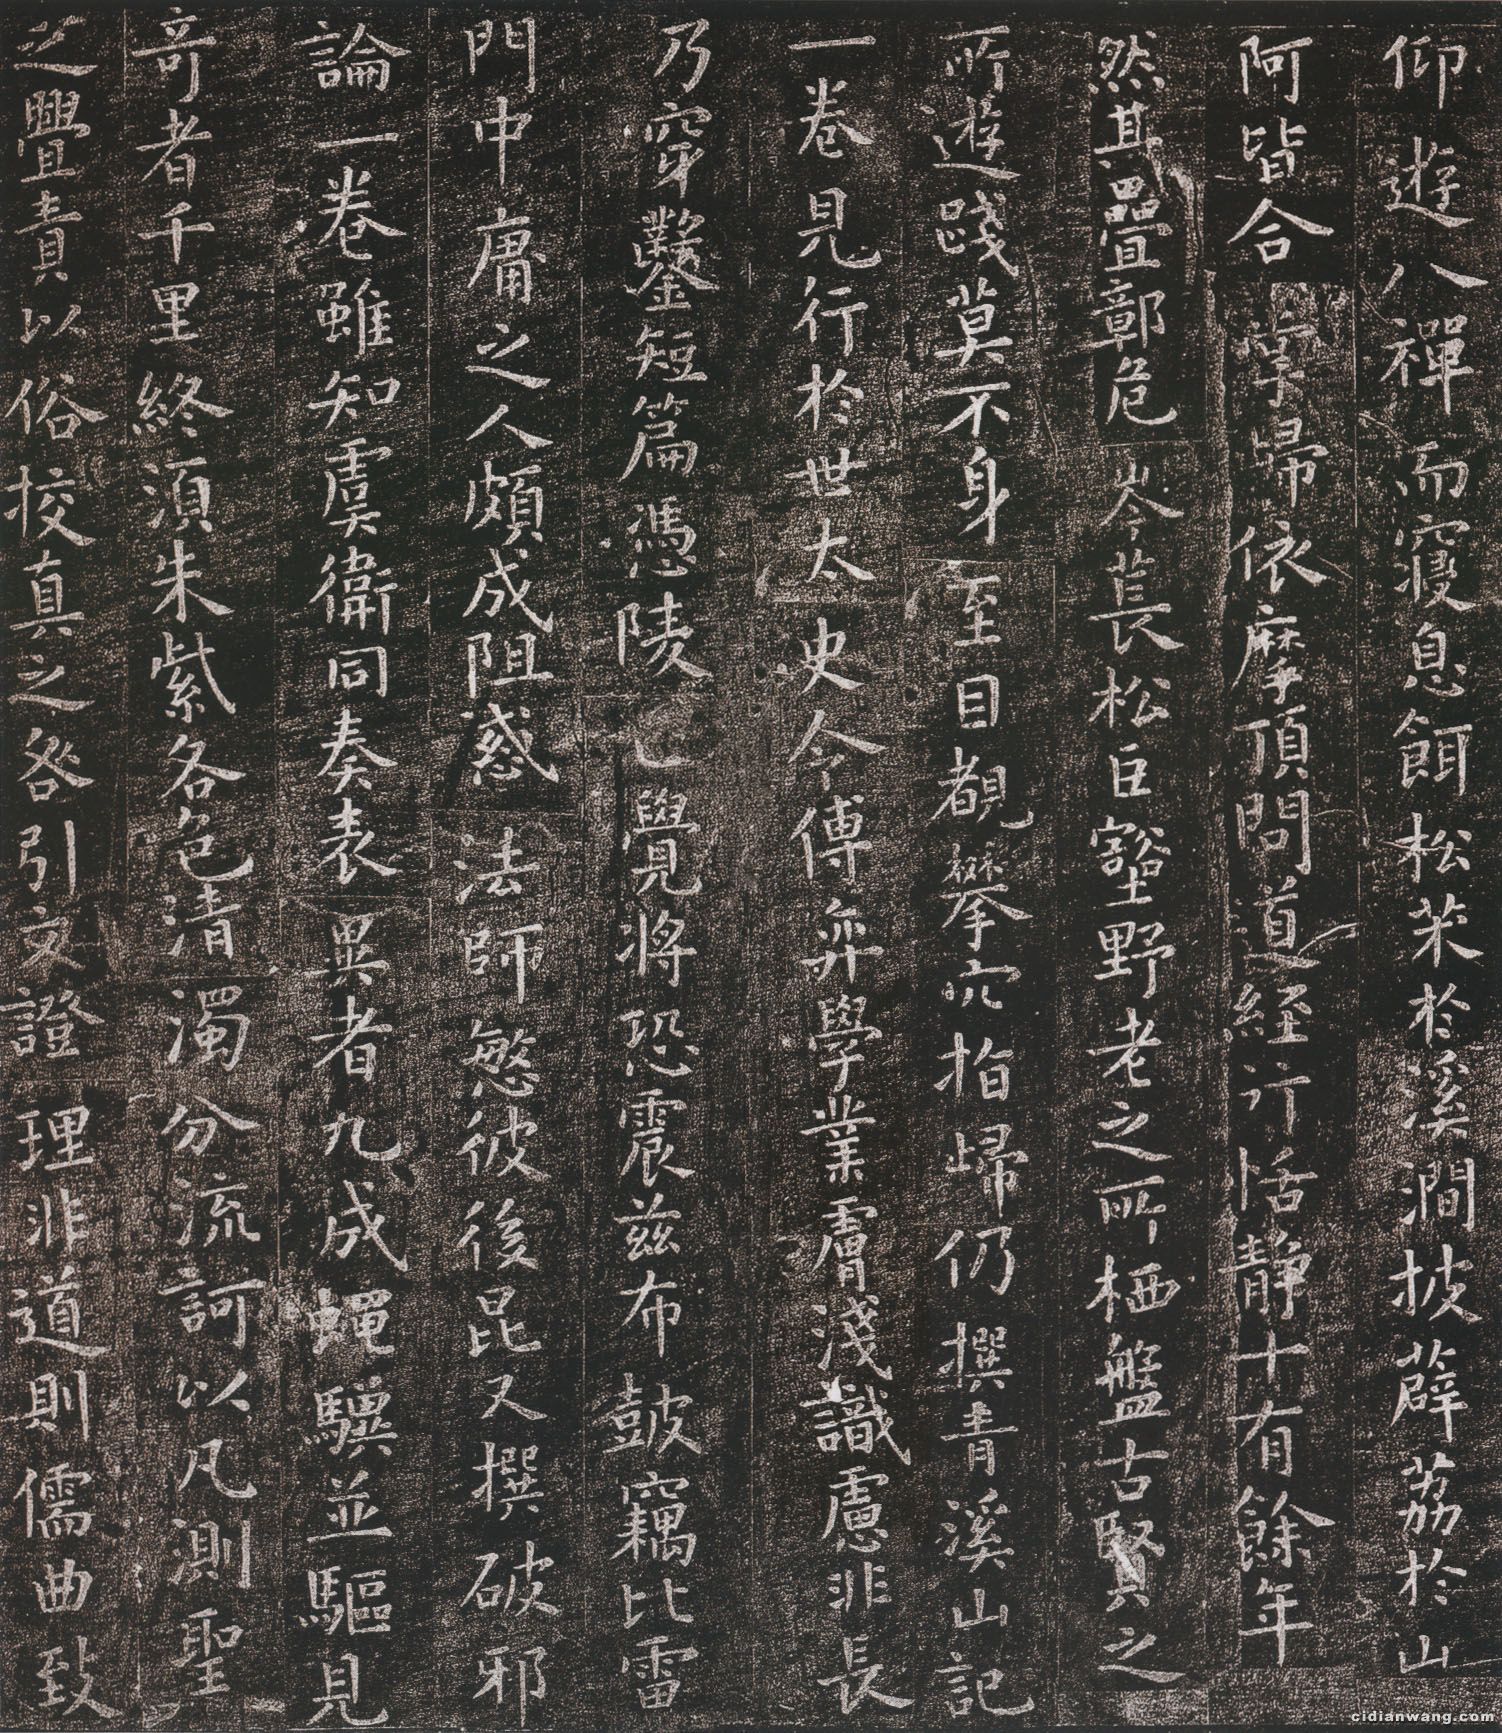 仰遊八禪而寢息餌松茱於溪澗披薜荔於山
阿皆合掌歸依摩頂問道經行恬静十有餘年
然其疊鄣危岑萇松巨壑野老之所栖盤古賢之
所遊踐莫不身至目覩攀穴指歸仍撰青溪山記
一卷見行於世太史令傅弈學業膚淺識慮非長
乃穿鑿短篇憑陵正覺將恐震茲布皷竊比雷
門中庸之人頗成阻惑法師慜彼後昆又撰破邪
論一卷雖知虞衛同奏表異者九成蠅驥並驅見
奇者千里終須朱紫各色清濁分流訶以凡測聖
之舋責以俗挍真之咎引文證理非道則儒曲致
cidianwang.com